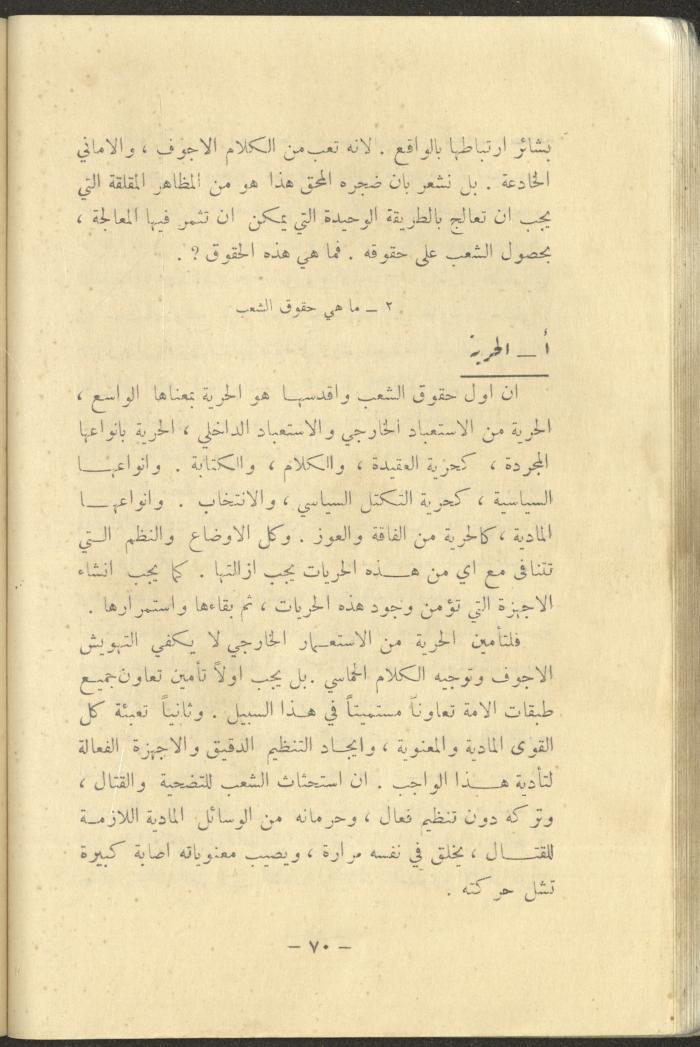 بشائر ارتباطها بالواقع . لانه تعب من الكلام الاجوف ، والاماني
الخادعة . بل نشعر بان ضجره المحق هذا هو من المظاهر المقلقة التي
يجب ان تعالج بالطريقة الوحيدة التي يمكن ان تثمر فيها المعالجة ،
بحصول الشعب على حقوقه . فما هي هذه الحقوق ? .
٢ – ما هي حقوق الشعب
أ – الحرية
ان اول حقوق الشعب واقدسها هو الحرية بمعناها الواسع ،
الحرية من الاستعباد الخارجي والاستعباد الداخلي ، الحرية بانواعها
المجردة ، كحرية العقيدة ، والكلام ، والكتابة . وانواعها
السياسية ، كحرية التكتل السياسي ، والانتخاب . وانواعها
المادية ، كالحرية من الفاقة والعوز . وكل الاوضاع والنظم التي
تتنافى مع اي من هذه الحريات يجب ازالتها . كما يجب انشاء
الاجهزة التي تؤمن وجود هذه الحريات ، ثم بقاءها واستمرارها .
فلتأمين الحرية من الاستعمار الخارجي لا يكفي التهويش
الاجوف وتوجيه الكلام الحماسي . بل يجب اولاً تأمين تعاون جميع
طبقات الامة تعاوناً مستميتاً في هذا السبيل . وثانياً تعبئة كل
القوى المادية والمعنوية ، وايجاد التنظيم الدقيق والاجهزة الفعالة
لتأدية هذا الواجب . ان استحثاث الشعب للتضحية والقتال ،
وتركه دون تنظيم فعال ، وحرمانه من الوسائل المادية اللازمة
للقتال ، يخلق في نفسه مرارة ، ويصيب معنوياته اصابة كبيرة
تشل حركته .
– ٧٠ –